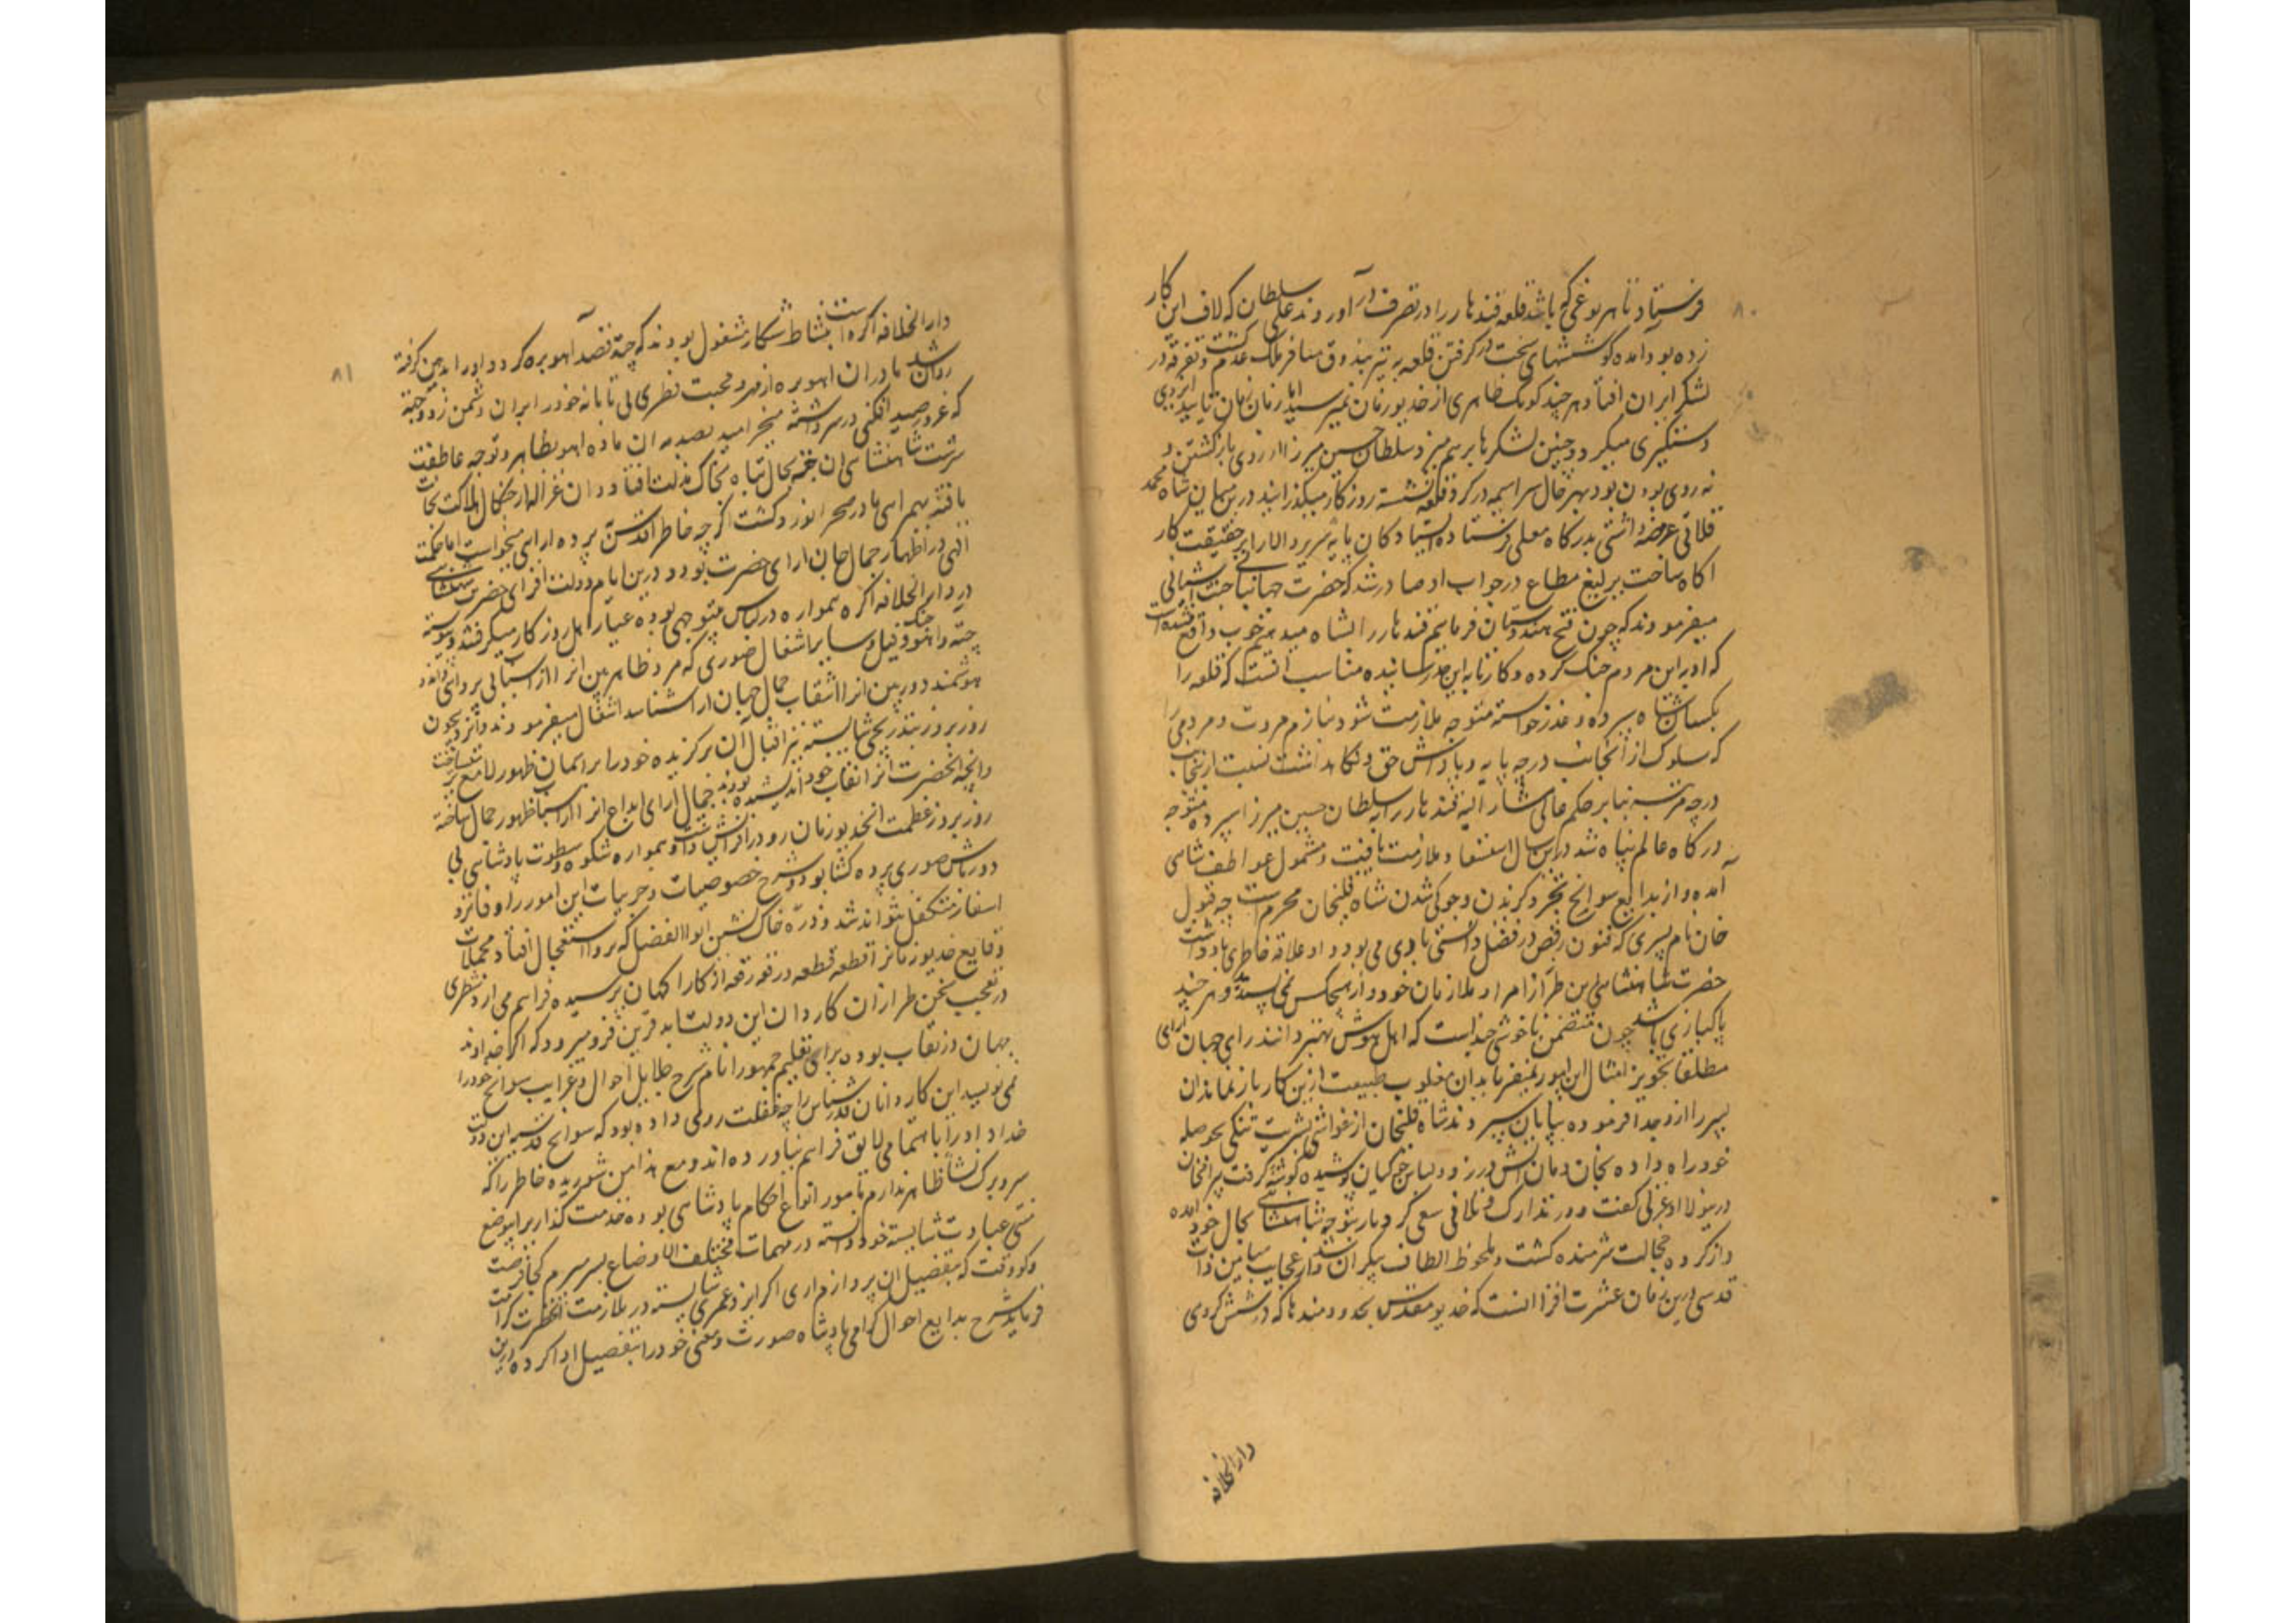 ۸۰
فرستاد تا بهر نوعی که باشد قلعه قندهار را در تصرف در آورند علی سلطان که لاف این کار
زده بود آمده کوششهای سخت در گرفتن قلعه به تیر بندوق مسافر ملک عدم گشت و تفرقه در
لشکر ایران افتاد هر چند کومک ظاهری از خدیو زمان نمیرسید اما زمان زمان تایید ایزدی
دستگیری میکرد و چنین لشکرها برهم میزد سلطان حسین میرزا را نه روی بازگشتن و
نه روی بودن بود بهر حال سراسیمه در گرد قلعه نشسته روزگار میگذرانید درین میان شاه محمد
قلاتی عرضداشتی بدرگاه معلی فرستاده استادگان پایه سریر والا را بر حقیقت کار
آگاه ساخت یرلیغ مطاع در جواب او صادر شد که حضرت جهانبانی جنت آشیانی
میفرمودند که چون فتح هندوستان فرماییم قندهار را بشاه میدهیم خوب واقع نشده است
که او با این مردم جنگ کرده و کار تا به این حد رسانیده مناسب آنست که قلعه را
بکسان شاه سپرده و عذر خواسته متوجه ملازمت شود بنازم مروت و مردمی را
که سلوک از آنجانب در چه پایه و پاداش حق و نگاهداشت نسبت ازینجانب
در چه مرتبه بنابر حکم عالی مشار الیه قندهار را به سلطان حسین میرزا سپرده متوجه
درگاه عالم پناه شد در این سال استسعاد ملازمت یافت و مشمول عواطف شاهی
آمده و از بدایع سوانح تجرد گزیدن و جوگی شدن شاه قلیخان محرم است چه قبول
خان نام پسری که فنون رقص در فضل دانستی با وی می بود و او علاقه خاطری باو داشت
حضرت شاهنشاهی این طرز از امرا و ملازمان خود و از هیچکس نمی پسندند هر چند
پاکبازی باشد چون متضمن ناخوشی چند است که اهل هوش بهتر دانند رای جهان آرای
مطلقا تجویز امثال این امور نمیفرماید آن مغلوب طبیعت ازین کار باز نماند آن
پسر را ازو جدا فرموده بپایان سپردند شاه قلیخان از غواشی بشریت تنگی بحوصله
خود راه داده بخان و مان آتش در زد و لباس جوگیان پوشیده گوشه گرفت بیرامخان
درینولا او غزلی گفت و در تدارک و تلافی سعی کرد بار بتوجه شاهنشاهی بحال خود آمده
و از کرده خجالت شرمنده گشت و ملحوظ الطاف بیکران شد و از عجایب میامن ذات
قدسی درین زمان عشرت افزا آنست که خدیو مقدس بحدود مندهاکر که در شش کروهی
دارالخلافه
۸۱
دارالخلافه آگره است بنشاط شکار مشغول بودند که چیته قصد آهو بره کرد و او را بدهن گرفته
روان شد مادر آن آهو بره از مهر و محبت فطری بی تابانه خود را بر آن دشمن زد و چیته
که غرور صید افکنی در سر داشته میخرامید بصدمه آن ماده آهو بظاهر و توجه عاطفت
سرشت شاهنشاهی آن چیته بحال تباه بخاک مذلت افتاد و آن غزاله از چنگال هلاکت نجات
یافته بهمراهی مادر صحرا نورد گشت اگر چه خاطر اقدس پرده آرایی میخواست اما حکمت
الهی در اظهار جمال جهان آرای حضرت بود و درین ایام دولت افزای حضرت شاهنشاهی
در دارالخلافه آگره همواره در لباس بی توجهی بوده عیار اهل روزگار میگرفتند و پیوسته
چیته و آهو و جنگ فیل و سایر اشغال ضروری که مرد ظاهربین آنرا از اسباب بی پروایی داند و
هوشمند دوربین آنرا نقاب جمال جهان آرا شناسد اشتغال میفرمودند و ایزد بیچون
روز بروز بتدریجی شایسته نیز اقبال آن برگزیده خود را بر آسمان ظهور لامع تر میساخت
و آنچه آنحضرت آنرا نقاب خود اندیشیده بودند جمال آرای ابداع آنرا از اسباب ظهور جمال ساخته
روز بروز عظمت آن خدیو زمان رو در افزایش داشت و همواره شکوه و سطوت پادشاهی بی
دورباش صوری پرده گشا بود و شرح خصوصیات و جزییات این امور را دفاتر و
اسفار متکفل نتواند شد و ذره خاک نشین ابوالفضل که برو استعجال افتاد و مجملات
وقایع خدیو زمانرا قطعه قطعه و رقعه رقعه از کارآگهان پرسیده فراهم می آرد شطری
در تعجب سخن طرازان کاردان این دولت ابد قرین فرو میرود که اگر خداوند
جهان در نقاب بود و برای تعلیم جمهور انام شرح جلایل احوال و غرایب سوانح خود را
نمی نویسد این کاردانان قدرشناس را چه غفلت روی داده بود که سوانح قدسیه این دولت
خداداد را با اهتمامی لایق فراهم نیاورده اند و مع هذا من شوریده خاطر را که
سر و برگ نشاء ظاهر ندارم مامور انواع احکام پادشاهی بوده خدمت گذار بر این وضع
منتهی عبادت شایسته خود دانسته در مهمات مختلف الاوضاع بسر میبرم کجا فرصت
و کو وقت که تفصیل آن پردازم آری اگر ایزد عمری شایسته در ملازمت آنحضرت کرامت
فرماید شرح بدایع احوال گرامی پادشاه صورت و معنی خود را بتفصیل ادا کرده درین